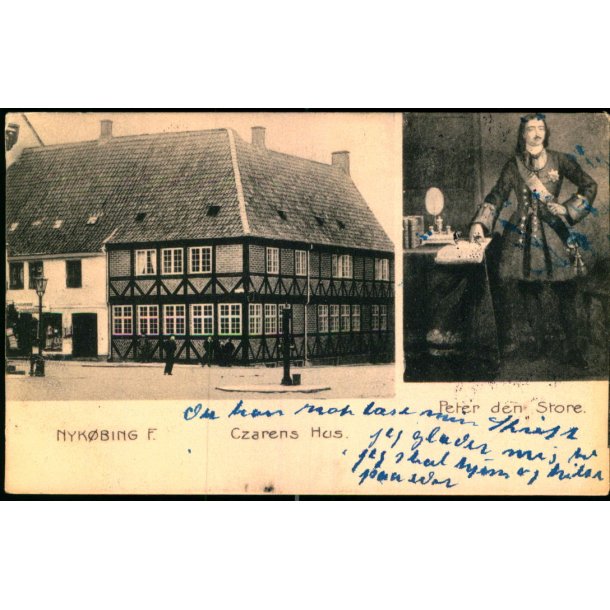 Peter den Store.
NYKØBING F. Czarens Hus.
Du kan nok læse min Skrift
jeg glæder mig til
jeg skal hjem og hilse
paa eder